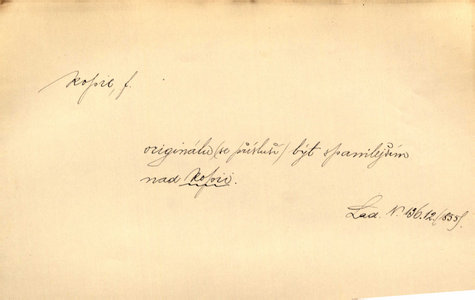 Kopie, f.
originálu (se přísluší) být spanilejším
nad kopii.
Lad. N. 136.12./855/.